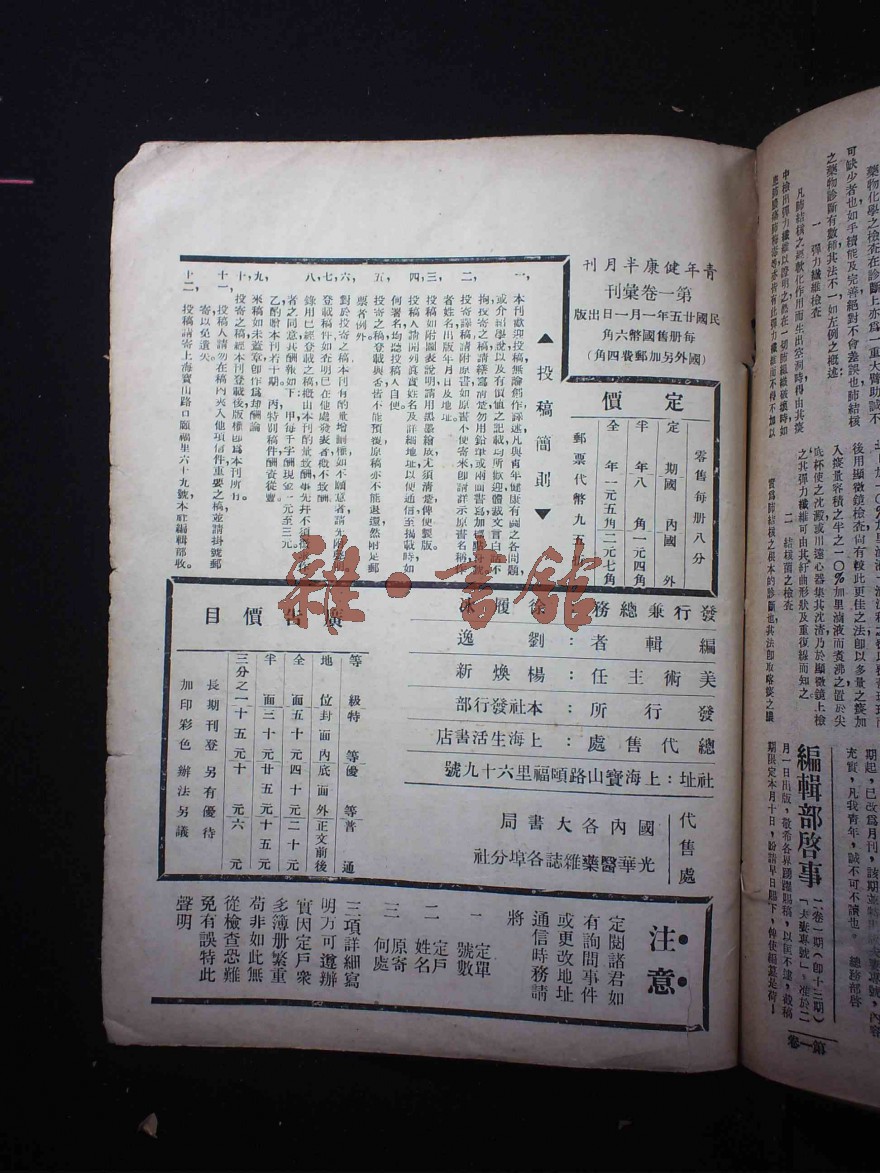 青年健康半月刊
第一卷彙刊
民國廿五年一月一日出版
每册售國幣六角
(國外另加郵費四角)
定價
零售每册八分
定期 國內 國外
半年 八角 一元四角
全年 一元五角 二元七角
郵票代幣九五
▲投稿簡則▼
一，本刊歡迎投稿無論創作譯述凡與青年健康有關之各問題
或介紹學說以及有價值之記載均所歡迎體裁文言白話不
拘投寄之稿請繕寫清楚勿用鉛筆或兩面書寫加標點符號
二，投寄譯稿請附原書如原書不便寄來即請詳示原書名稱
者姓名出版年月日及地址
三，投稿如附圖表說明請用黑墨繪成尤須清楚俾便製版
四，投稿人請開列眞實姓名及詳細地址以便通信至揭載時如
何署名均聽投稿人自便
五，投寄之稿登載與否皆不能預復原稿亦不能退還然附足郵
票者例外
六，對於投寄之稿本刊有酌量增删權如不願意者請先附聲明
七，登載稿件如查明已在他處發表者概不致酬
八，錄用已經登載之稿概由本刊酌量致酬事先并不須徵
者之同意其酬報如下：甲，每千字酬現金一元至三元。
乙酌贈本刊若干期。丙特別稿件酬資從豐
九，來稿如未蓋章卽作爲却酬論
十，投寄之稿經本刊登載後，版權卽爲本刊所有。
十一，投稿人請勿在稿內夾入他項信件重要之稿並請掛號郵
寄以免遺失
十二，投稿請寄上海寶山路口頤福里六十九號本社編輯部收。
發行兼總務：徐履冰
編輯者：劉逸
美術主任：楊煥新
發行所：本社發行部
總代售處：上海生活書店
社址：上海寶山路頤福里六十九號
代售處
國內各大書局
光華醫藥雜誌各埠分社
廣告價目
等級 特等 優等 普通
地位 封面內底面外 正文前後
全面 五十元 四十元 二十元
半面 三十元 廿五元 十五元
三分之一 十五元 十元 六元
長期刊登 另有優待
加印彩色 辦法另議
注意
定閱諸君如
有詢問事件
或更改地址
通信時務請
將
一 定單號數
二 定戶姓名
三 原寄何處
三項詳細寫
明方可遵辦
實因定戶衆
多簿册繁重
苟非如此無
從檢查恐難
免有誤特此
聲明
藥物化學之檢查在診斷上亦爲一重大臂助誠不
可缺少者也如手續能及完善絕對不會差誤也肺結核
之藥物診斷有數種其法不一如左例之概述
一 彈力纖維檢查
凡肺結核之經軟化作用而生出空洞時得由其痰
中檢出彈力纖維以證明之
後用顯微鏡檢查尙有較此更佳之法卽以多量之痰加
入痰量容積之半之一〇%加里滷液而煮沸之置於尖
底杯使之沈澱或用遠心器集其沈渣乃於顯微鏡上檢
之其彈力纖維可由其紆曲形狀及重復線而知之
二 結核菌之檢查
期起，已改爲月刊，該期並特出
充實，凡我青年，誠不可不讀也。 總務部啓
編輯部啓事
二卷一期（卽十三期）
月一日出版，敬希各界踴躍賜稿，以匡不逮，截稿
期限定本月十日，盼請早日賜下，俾便編纂是荷！
第一卷
雜·書館